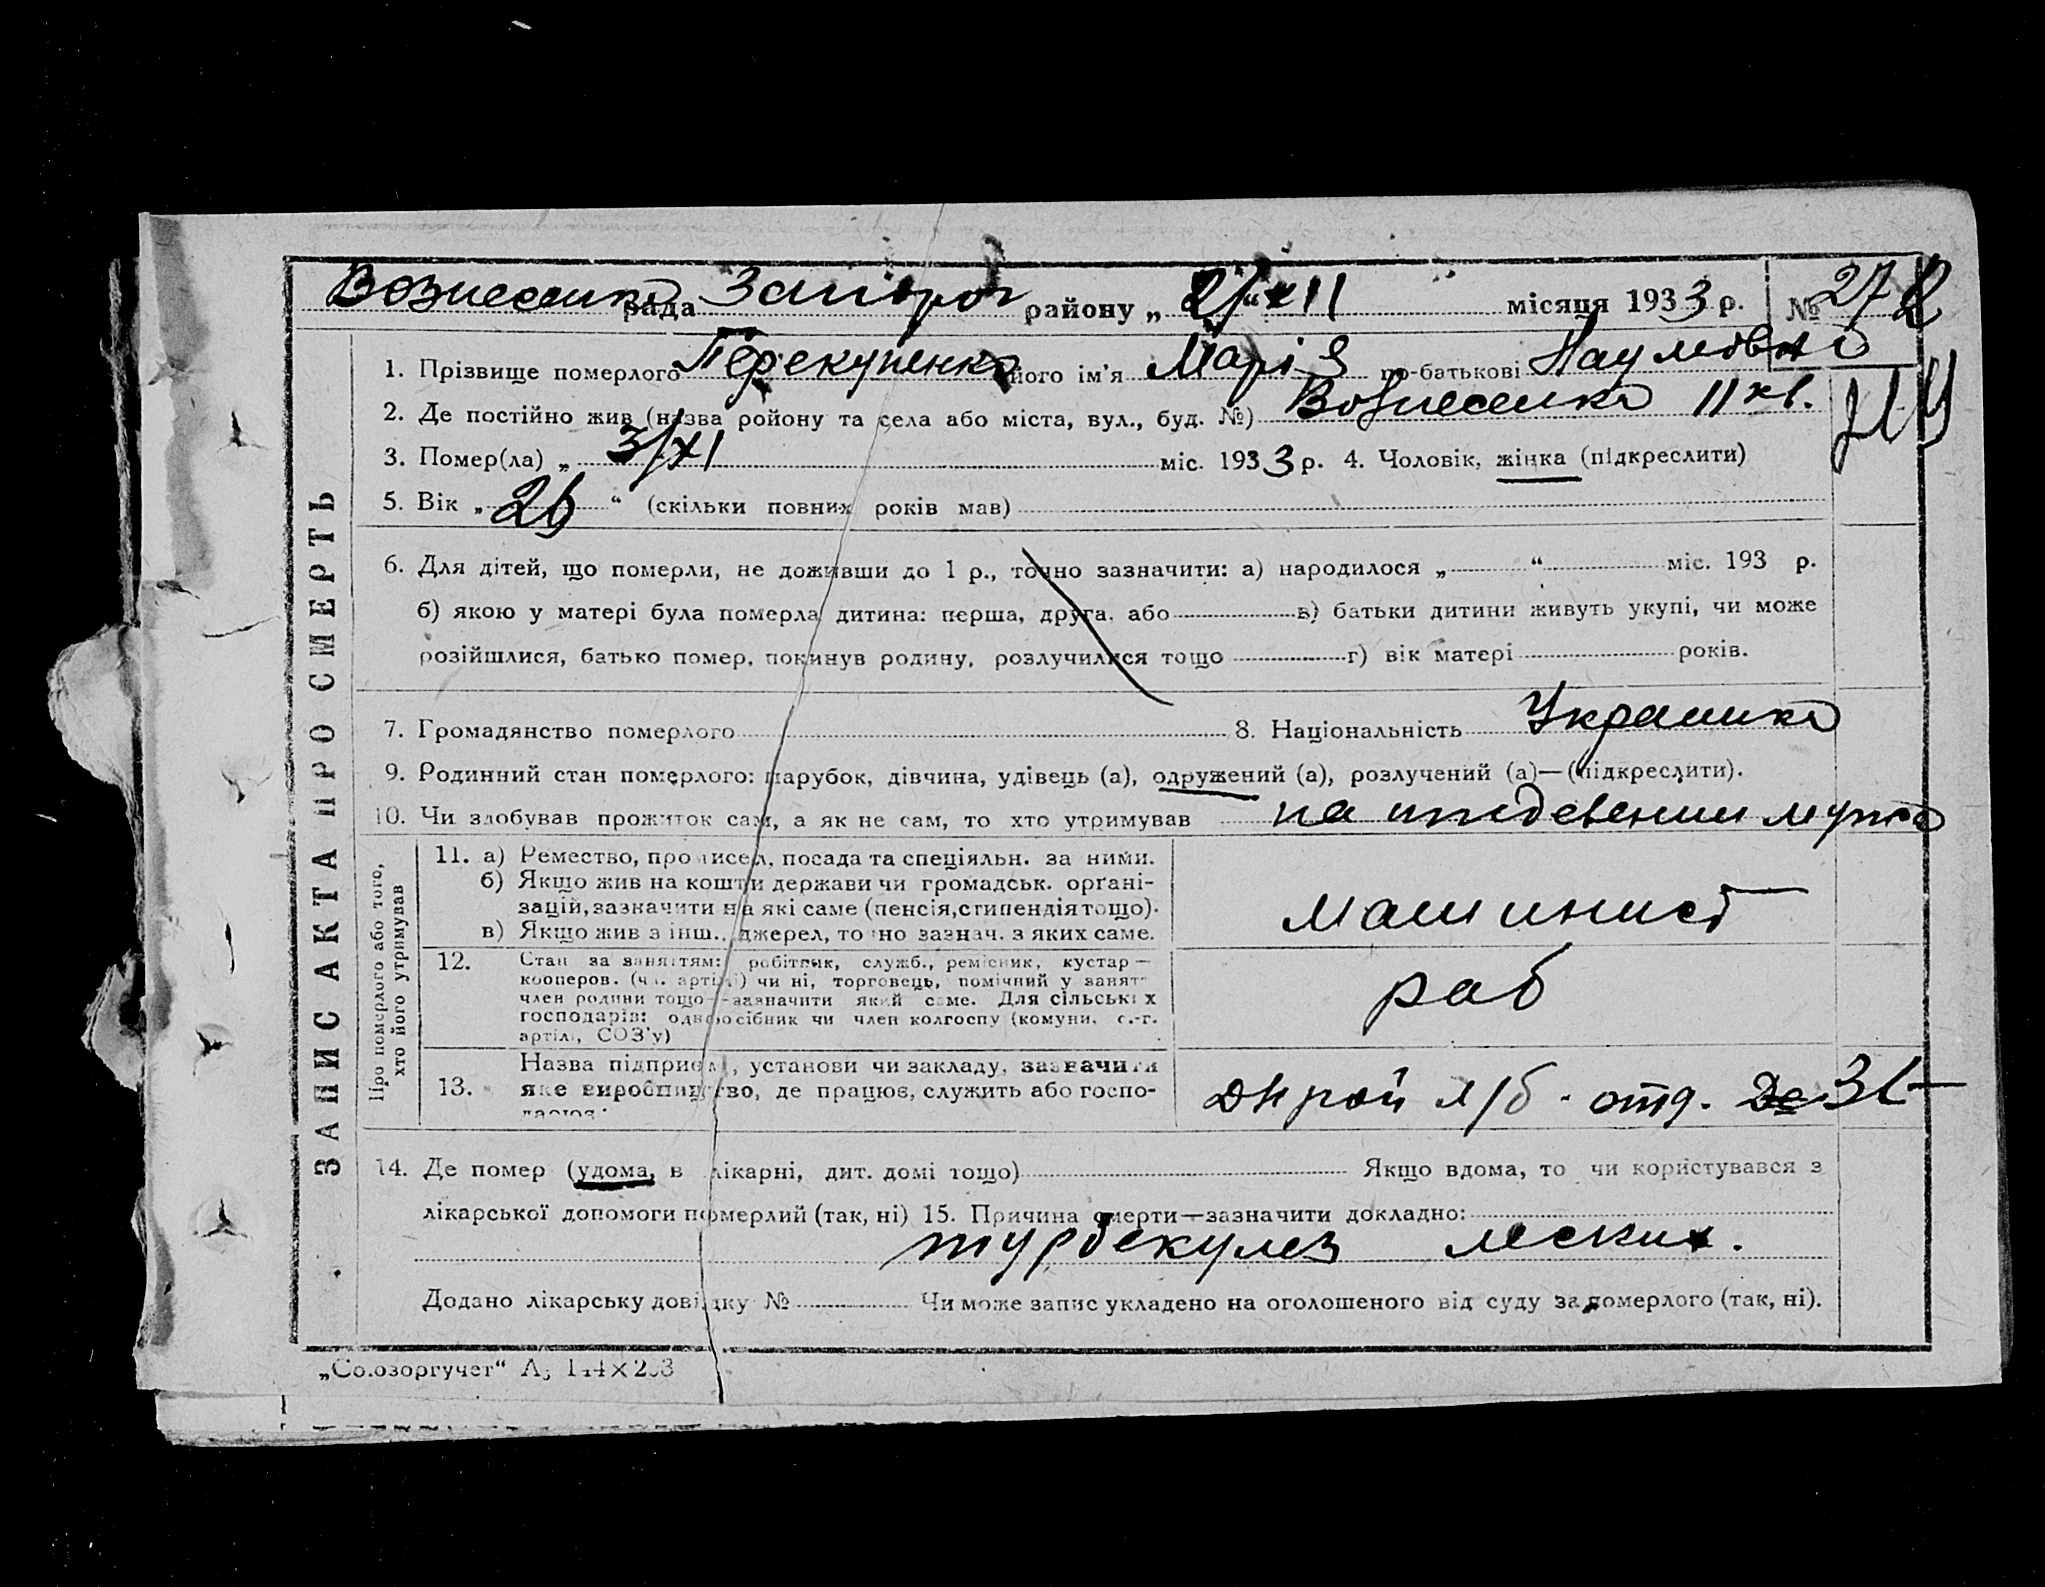 Вознесенка рада Запорог району „ 2/XII “ місяця 1933 р. № 272
1. Прізвище померлого Перекупенко його ім'я Марія по-батькові Наумовна
2. Де постійно жив (назва ройону та села або міста, вул., буд. №) Вознесенка 11 кв.
3. Помер(ла) „ 3/XI міс. 1933 р. 4. Чоловік, жінка (підкреслити)
5. Вік „ 26 “ (скільки повних років мав)
6. Для дітей, що померли, не доживши до 1 р., точно зазначити: а) народилося „ “ міс. 193 р.
б) якою у матері була померла дитина: перша, друга, або в) батьки дитини живуть укупі, чи може
розійшлися, батько помер, покинув родину, розлучилися тощо г) вік матері років.
7. Громадянство померлого 8. Національність Украинка
9. Родинний стан померлого: парубок, дівчина, удівець (а), одружений (а), розлучений (а)—(підкреслити).
10. Чи здобував прожиток сам, а як не сам, то хто утримував на иждевении мужа
ЗАПИС АКТА ПРО СМЕРТЬ
Про померлого або того,
хто його утримував
11. а) Ремество, промисел, посада та спеціяльн. за ними.
б) Якщо жив на кошти держави чи громадськ. орґані-
зацій, зазначити на які саме (пенсія, стипендія тощо).
в) Якщо жив з інш. джерел, точно зазнач. з яких саме.
машинист
12. Стан за заняттям: робітник, служб., ремісник, кустар—
кооперов. (чл. артілі) чи ні, торговець, помічний у занят-
член родини тощо—зазначити який саме. Для сільських
господарів: одноосібник чи член колгоспу (комуни, с.-г.
артілі, СОЗ'у)
раб
13. Назва підприєм, установи чи закладу, зазначити
яке виробництво, де працює, служить або госпо-
дарює.
Днрой л/б. отд.
14. Де помер (удома, в лікарні, дит. домі тощо) Якщо вдома, то чи користувався з
лікарської допомоги померлий (так, ні) 15. Причина смерти—зазначити докладно:
турбекулез леских.
Додано лікарську довідку № Чи може запис укладено на оголошеного від суду за померлого (так, ні).
„Союзоргучет“